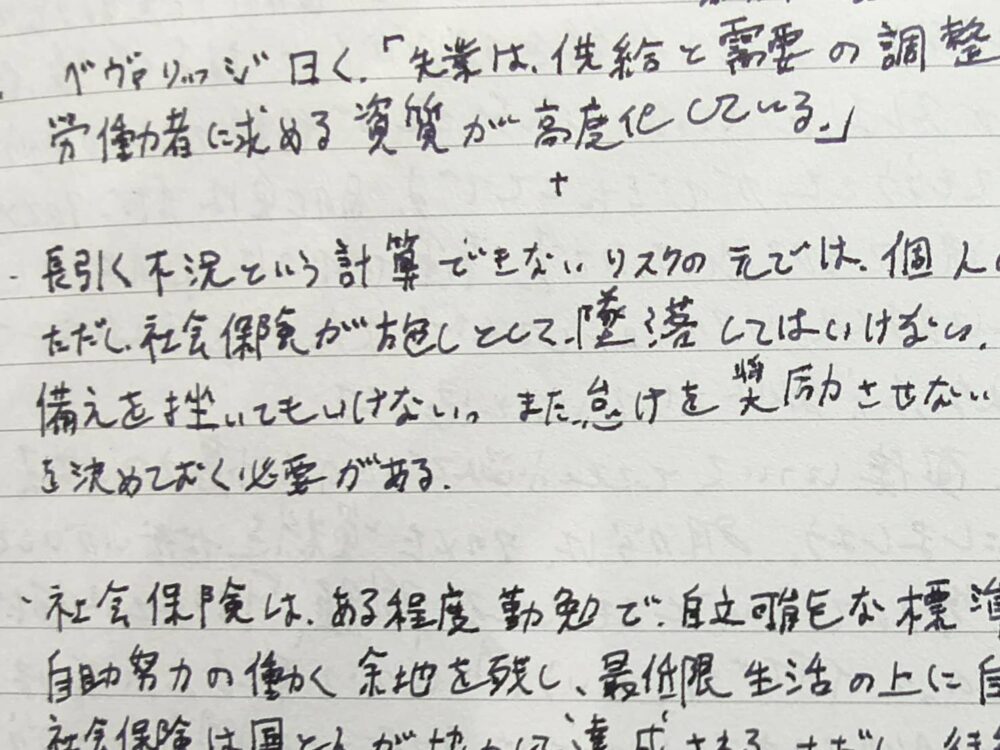 ベヴァリッジ曰く、「失業は、供給と需要の調整
労働者に求める資質が高度化している。」
+
・長引く不況という計算できないリスクの元では、個人
ただし、社会保険が施しとして、墜落してはいけない。
備えを挫いてもいけない。また、怠けを奨励させない
を決めておく必要がある。
・社会保険は、ある程度勤勉で、自立可能な標準
自助努力の働く余地を残し、最低限生活の上に自
社会保険は国と